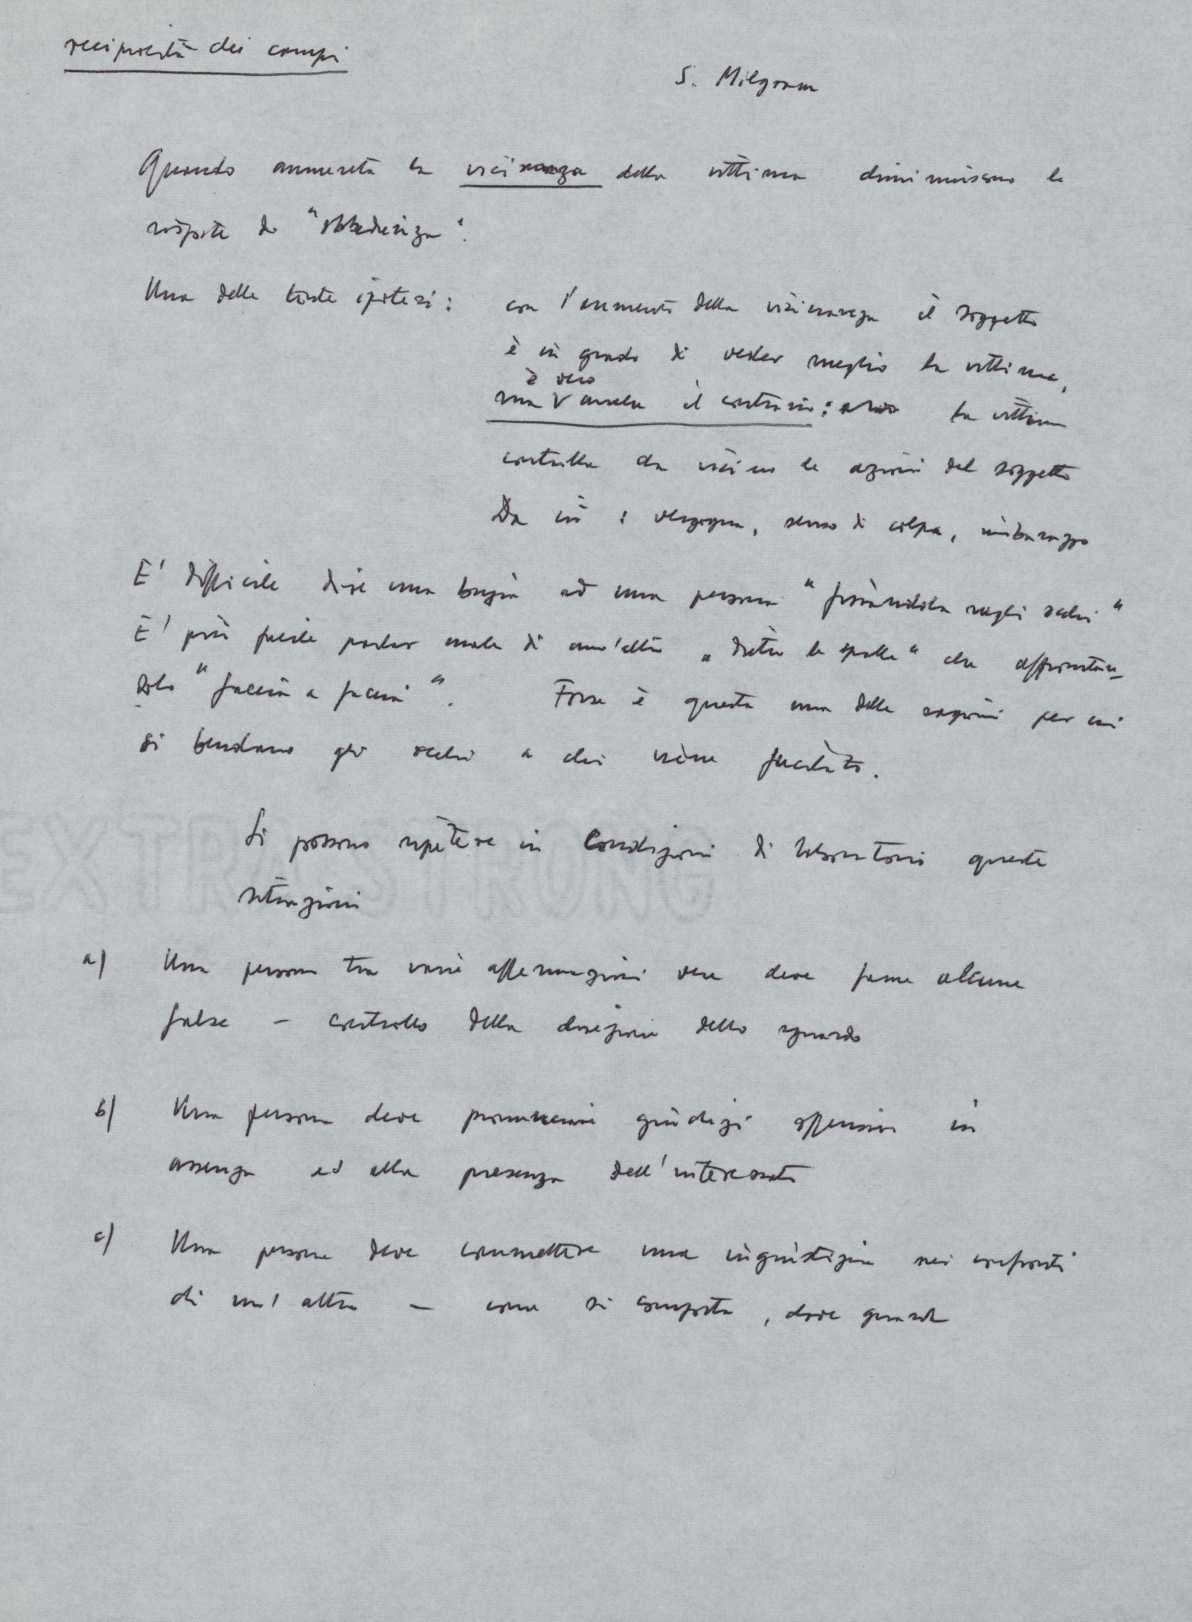 reciprocità dei campi
S. Milgram
Quando aumenta la vicinanza della vittima diminuiscono le
risposte di "obbedienza".
Una delle tante ipotesi:
con l'aumento della vicinanza il soggetto
è in grado di veder meglio la vittima,
è vero
ma V anche il contrario: la vittima
controlla da vicino le azioni del soggetto
Da cui: vergogna, senso di colpa, imbarazzo
E' difficile dire una bugia ad una persona "fissandola negli occhi"
E' più facile parlar male di un'altro "dietro le spalle" che affrontan-
dolo "faccia a faccia". Forse è questa una delle ragioni per cui
si bendano gli occhi a chi viene fucilato.
EXTRA STRONG
Si possono ripetere in condizioni di laboratorio queste
situazioni
a) Una persona tra varie affermazioni vere deve farne alcune
false - controllo della direzione dello sguardo
b) Una persona deve pronunciare giudizi offensivi in
assenza ed alla presenza dell'interessato
c) Una persona deve commettere una ingiustizia nei confronti
di un'altra - come si comporta, dove guarda